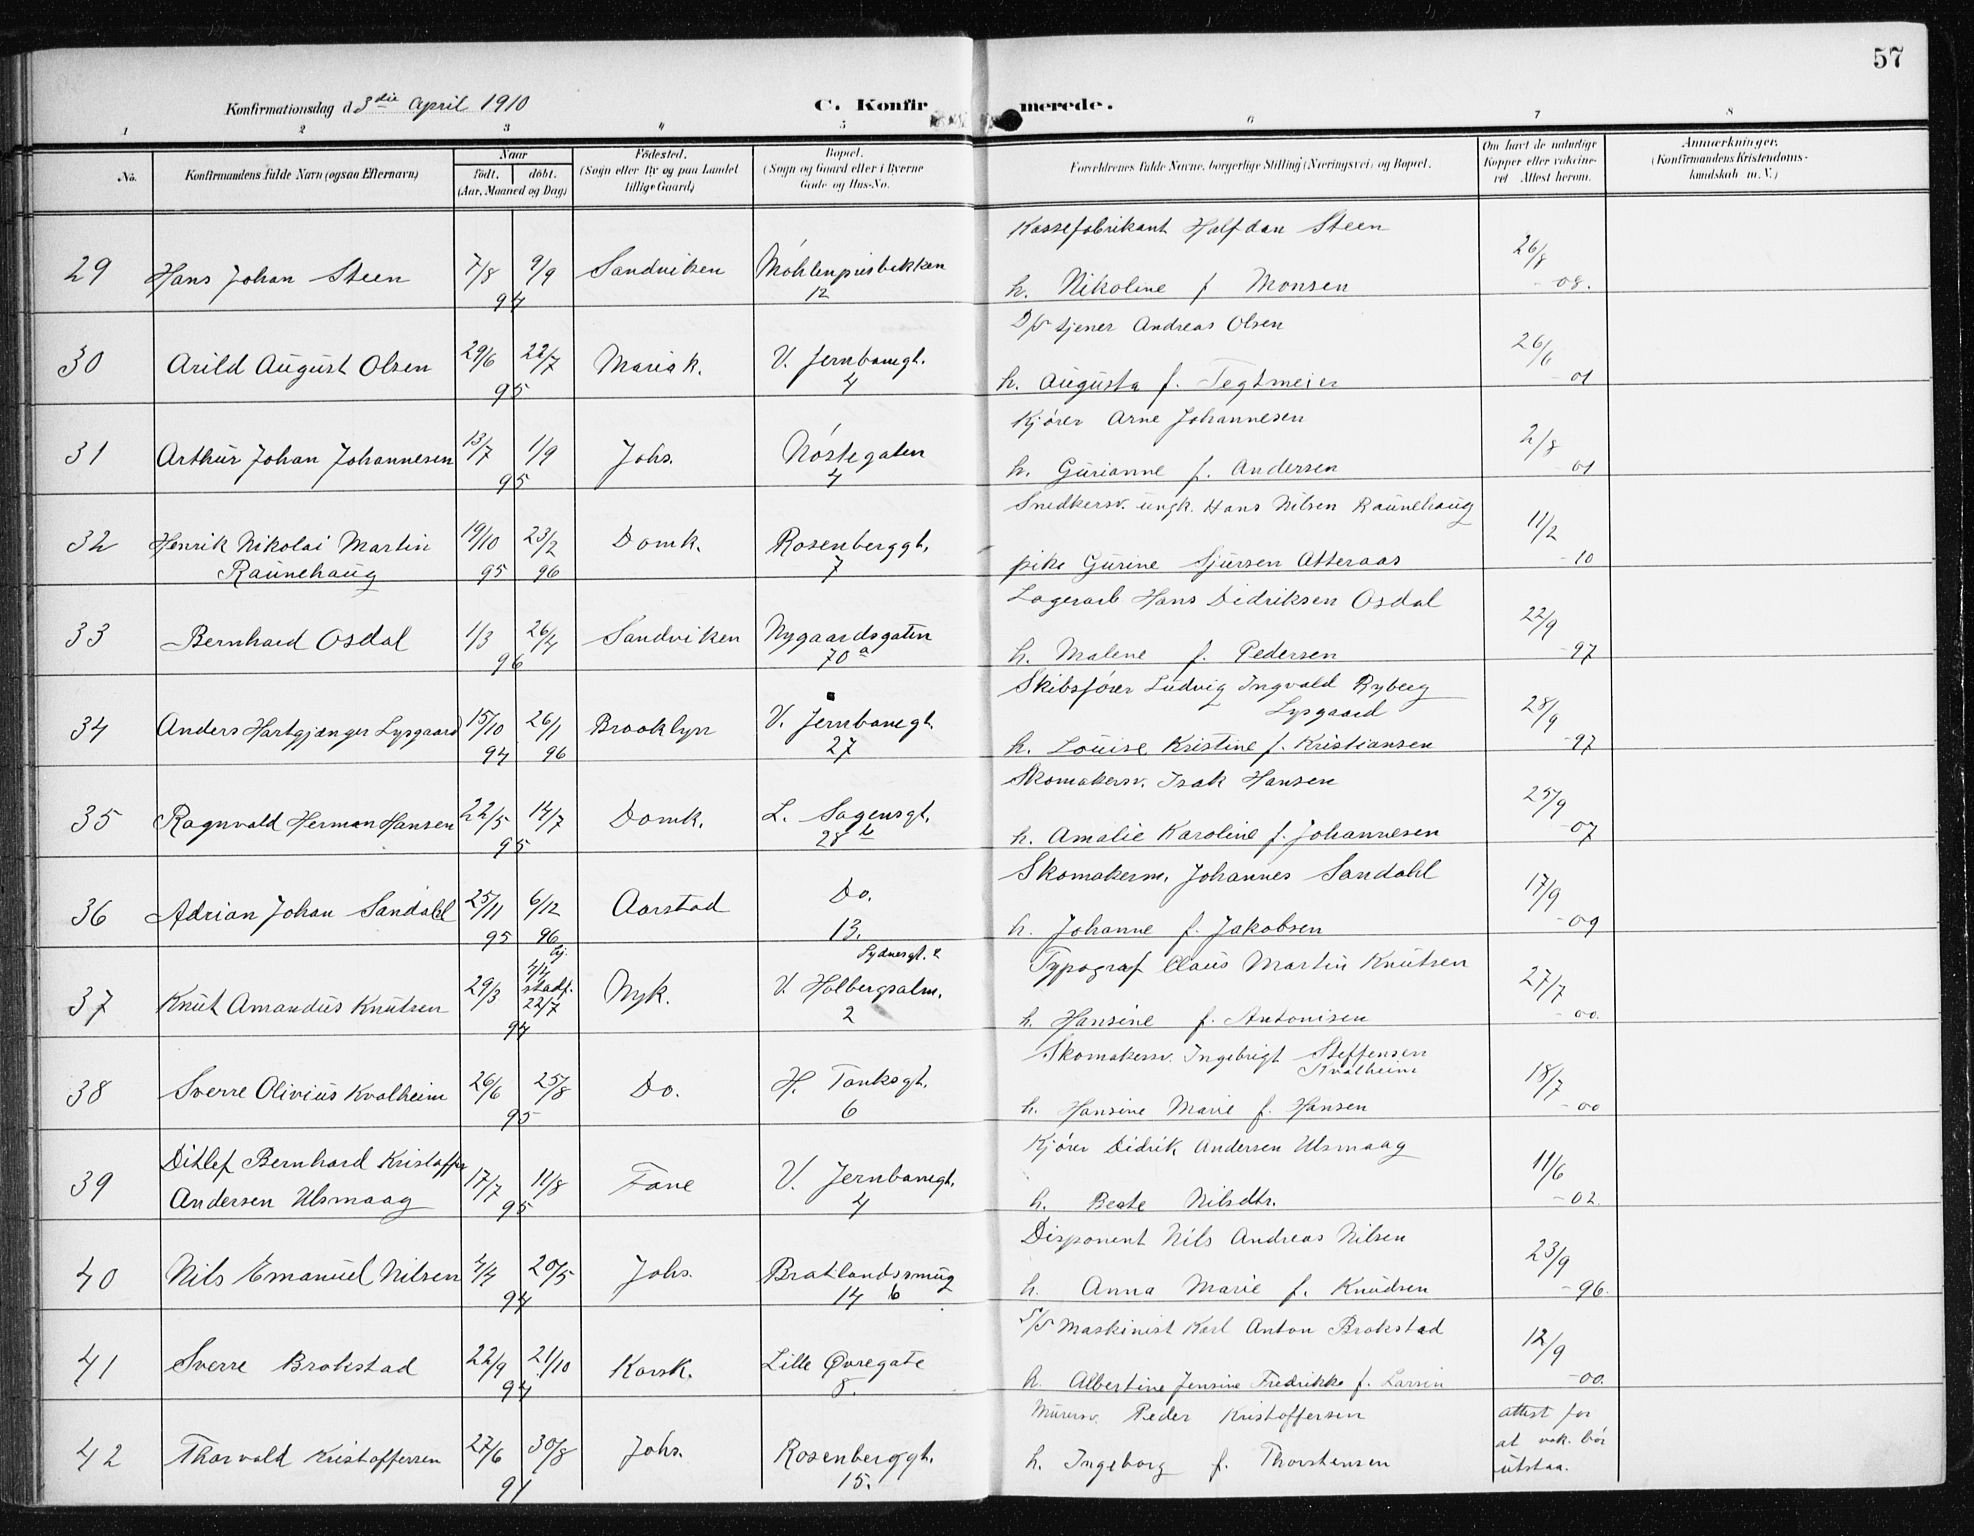 57
Konfirmationsdag d. 3die April 1910 C. Konfirmerede.
1 2 3 4 5 6 7 8
No. Konfirmandens fulde Navn (ogsaa Efternavn) Naar Födt. döbt. (Aar, Maaned og Dag) Födested. (Sogn eller By og paa Landet tillige Gaard) Bopæl. (Sogn og Gaard eller i Byerne Gade og Hus-No. Forældrenes fulde Navne, borgerlige Stilling (Næringsvei) og Bopæl. Om havt de naturlige Kopper eller vakcineret Attest herom. Anmærkninger. (Konfirmandens Kristendomskundskab m. V.)
Kassefabrikant Halfdan Steen
29 Hans Johan Steen 7/8 9/9 Sandviken Möhlenprisbakken 26/8
94 12 h. Nikoline f. Monsen - 08.
D/S tjener Andreas Olsen
30 Arild August Olsen 29/6 22/7 Mariak. V. Jernbanegt. 26/6
95 4 h. Augusta f. Tegtmeier - 01
Kjører Arne Johannesen
31 Arthur Johan Johannesen 13/7 1/9 Johs. Nöstegaten 2/8
95 4 h. Gurianne f. Andersen - 01
Snedkersv. ungk. Hans Nilsen Raunehaug
32 Henrik Nikolai Martin 19/10 23/2 Domk. Rosenberggt. 11/2
Raunehaug 95 96 7 pike Gurine Sjursen Atteraas - 10
Lagerarb. Hans Didriksen Osdal
33 Bernhard Osdal 1/3 26/4 Sandviken Nygaardsgaten 22/9
96 70a h. Malene f. Pedersen - 97
Skibsfører Ludvig Ingvald Ryberg
Lysgaard
34 Anders Hartgjænger Lysgaard 15/10 26/1 Brooklyn V. Jernbanegt. 28/9
94 96 27 h. Louise Kristine f. Kristiansen - 97
Skomakersv. Isak Hansen
35 Ragnvald Herman Hansen 22/5 14/7 Domk. L. Sagensgt. 25/9
95 28b h. Amalie Karoline f. Johannesen - 07
Skomakerm. Johannes Sandahl
36 Adrian Johan Sandahl 25/11 6/12 Aarstad Do. 17/9
95 96 13. h. Johanne f. Jakobsen - 09
Sydnesgt. 2
Typograf Claus Martin Knutsen
37 Knut Amandus Knutsen 29/3 stadf. 22/7 Nyk. V. Holbergsalm. 27/7
94 2 h. Hansine f. Antonisen - 00.
Skomakersv. Ingebrigt Steffensen
Kvalheim
38 Sverre Olivius Kvalheim 26/6 25/8 Do. H. Tanksgt. 18/7
95 6 h. Hansine Marie f. Hansen - 00
Kjører Didrik Andersen Ulsmaag
39 Ditlef Bernhard Kristoffer
Andersen Ulsmaag 17/7 11/8 Fane V. Jernbanegt. 11/6
95 4 h. Beate Nilsdtr. - 02.
Disponent Nils Andreas Nilsen
40 Nils Emanuel Nilsen 4/4 20/5 Johs. Bratlandssmug 23/9
94 14 b h. Anna Marie f. Knudsen - 96.
S/S Maskinist Karl Anton Brokstad
41 Sverre Brokstad 22/9 21/10 Korsk. Lille Øvregate 12/9
94 8. h. Albertine Jensine Fredrikke f. Larsen - 00.
Murersv. Peder Kristoffersen attest for
42 Thorvald Kristoffersen 27/6 30/8 Johs. Rosenberggt. at vak. bör
91 15. h. Ingeborg f. Thorstensen utstaa.